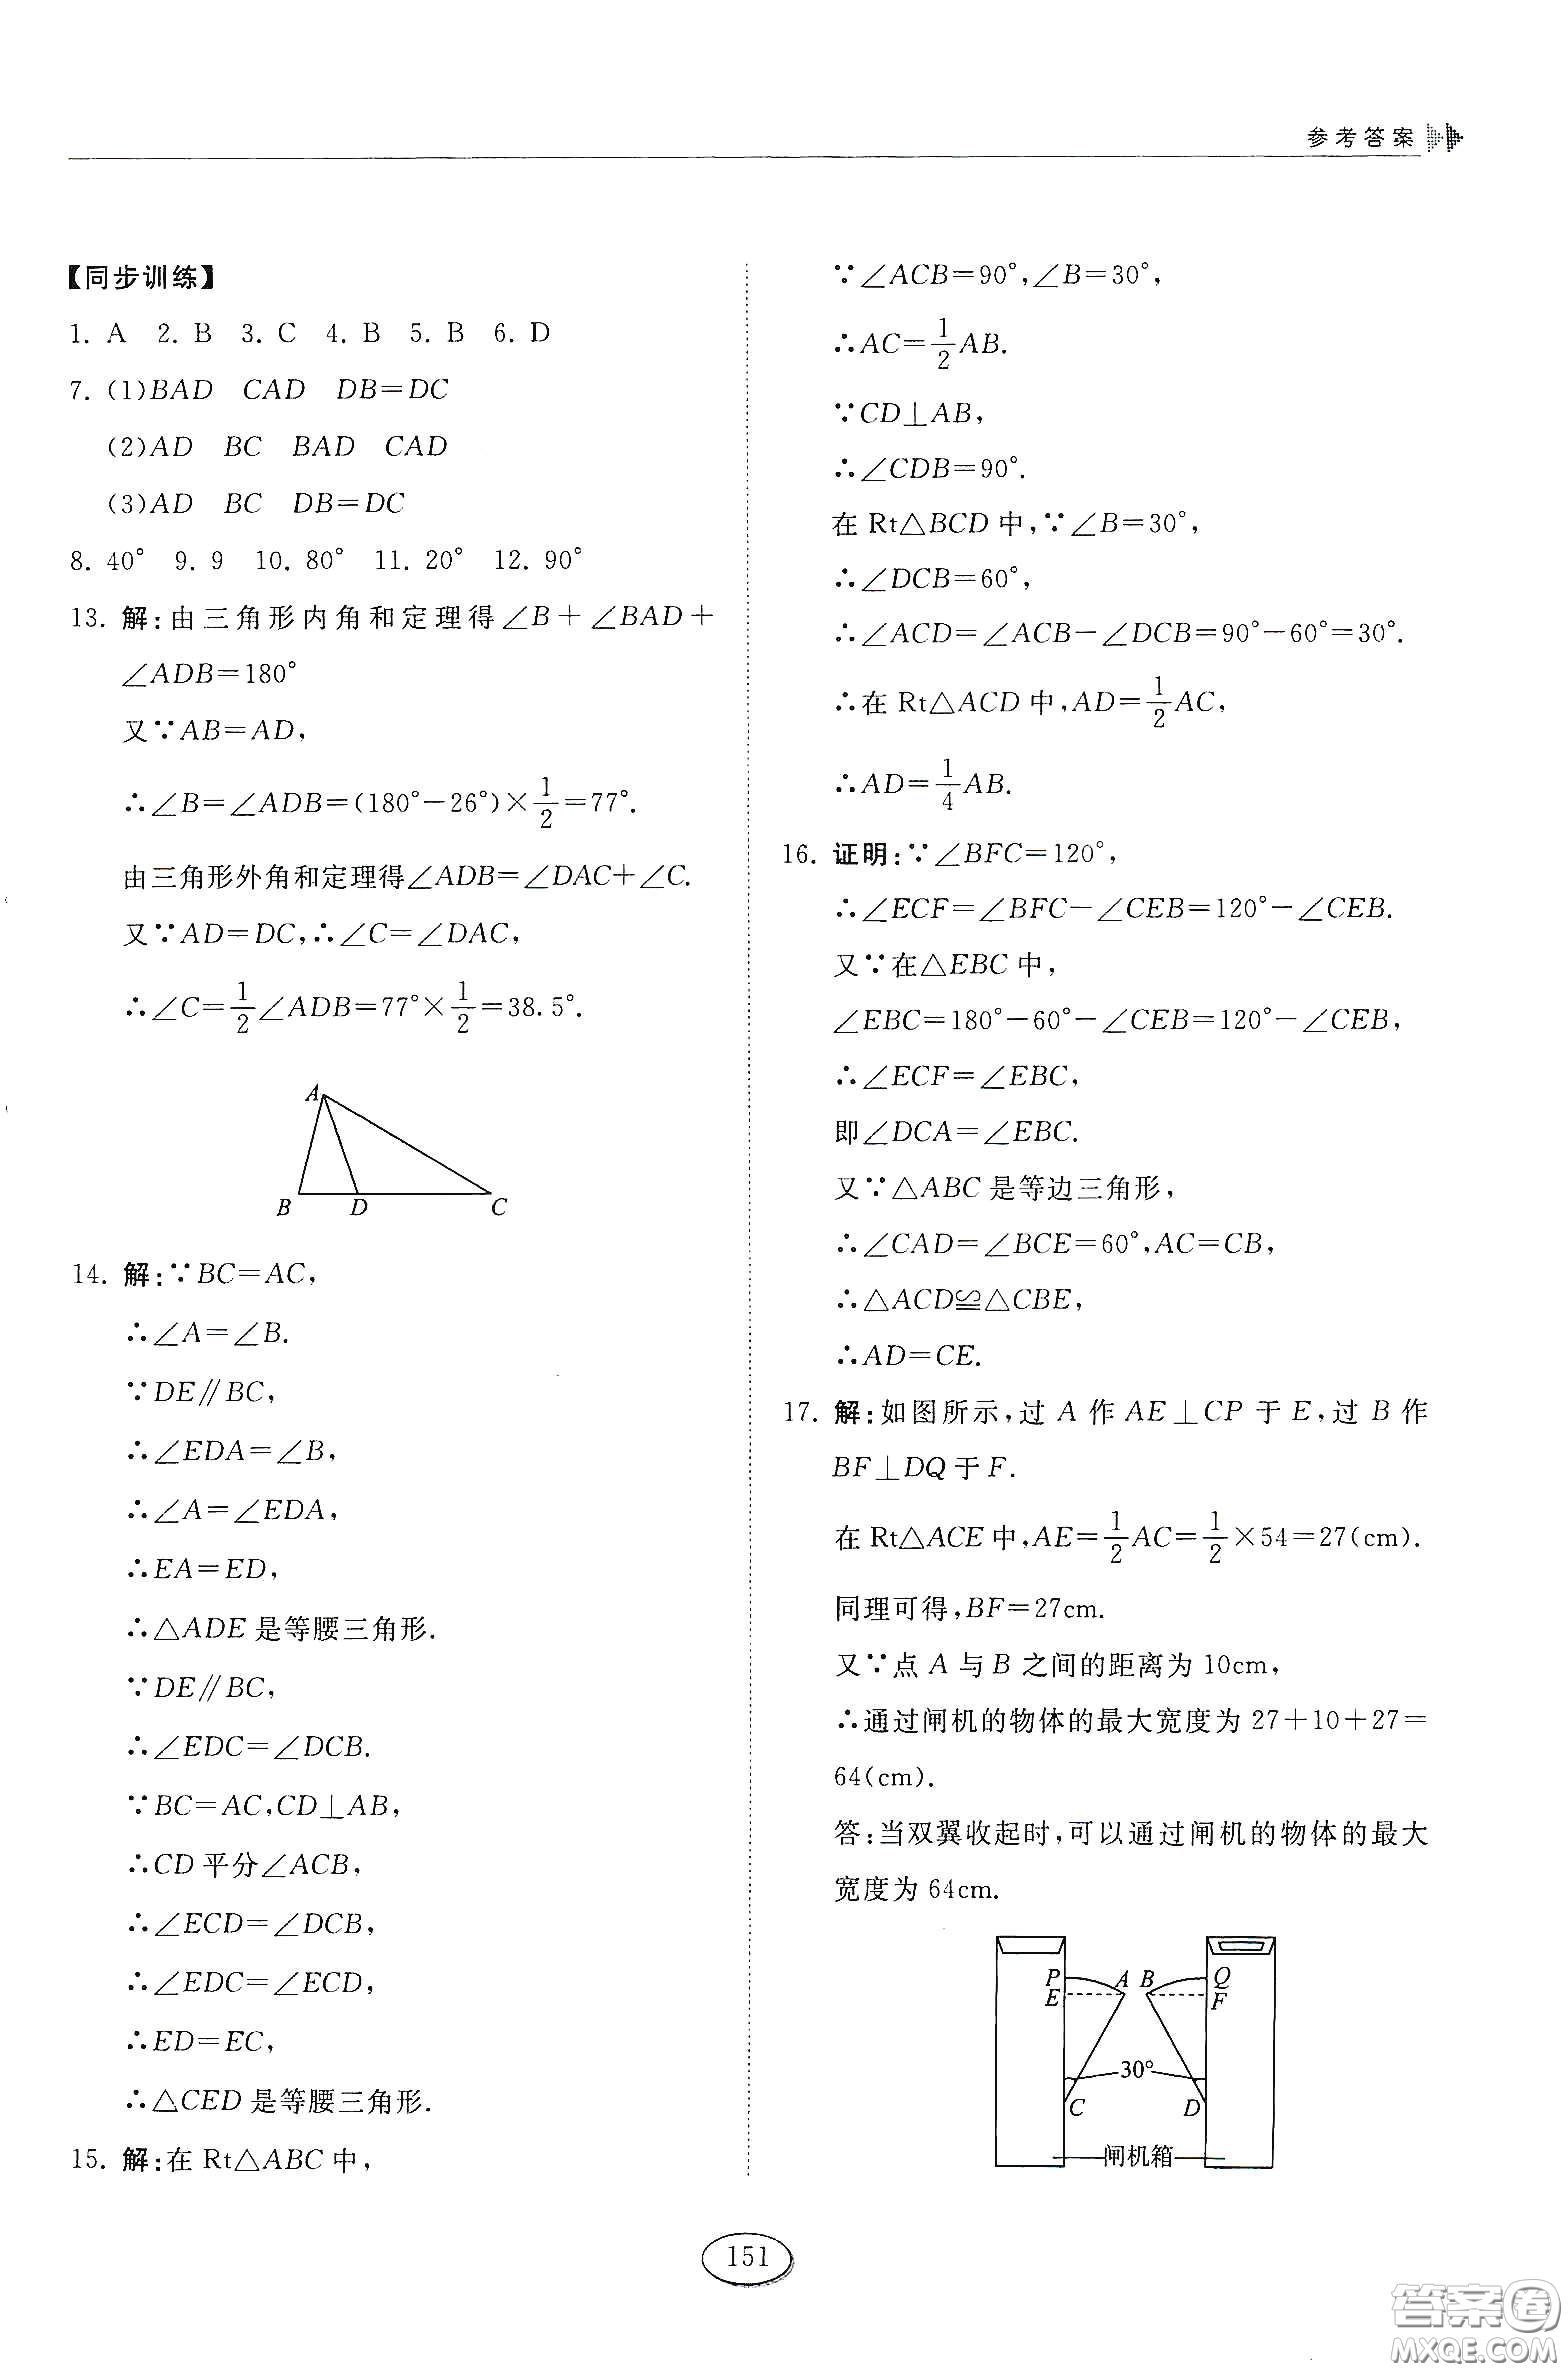 参考答案
【同步训练】
1. A 2. B 3. C 4. B 5. B 6. D
7. (1)BAD CAD DB=DC
(2)AD BC BAD CAD
(3)AD BC DB=DC
8. 40° 9. 9 10. 80° 11. 20° 12. 90°
13. 解:由三角形内角和定理得∠B+∠BAD+
∠ADB=180°
又∵AB=AD,
∴∠B=∠ADB=(180°-26°)×1/2=77°.
由三角形外角和定理得∠ADB=∠DAC+∠C.
又∵AD=DC,∴∠C=∠DAC,
∴∠C=1/2∠ADB=77°×1/2=38.5°.
A
B D C
14. 解:∵BC=AC,
∴∠A=∠B.
∵DE∥BC,
∴∠EDA=∠B,
∴∠A=∠EDA,
∴EA=ED,
∴△ADE是等腰三角形.
∵DE∥BC,
∴∠EDC=∠DCB.
∵BC=AC,CD⊥AB,
∴CD平分∠ACB,
∴∠ECD=∠DCB,
∴∠EDC=∠ECD,
∴ED=EC,
∴△CED是等腰三角形.
15. 解:在Rt△ABC中,
∵∠ACB=90°,∠B=30°,
∴AC=1/2AB.
∵CD⊥AB,
∴∠CDB=90°.
在Rt△BCD中,∵∠B=30°,
∴∠DCB=60°,
∴∠ACD=∠ACB-∠DCB=90°-60°=30°.
∴在Rt△ACD中,AD=1/2AC,
∴AD=1/4AB.
16. 证明:∵∠BFC=120°,
∴∠ECF=∠BFC-∠CEB=120°-∠CEB.
又∵在△EBC中,
∠EBC=180°-60°-∠CEB=120°-∠CEB,
∴∠ECF=∠EBC,
即∠DCA=∠EBC.
又∵△ABC是等边三角形,
∴∠CAD=∠BCE=60°,AC=CB,
∴△ACD≌△CBE,
∴AD=CE.
17. 解:如图所示,过A作AE⊥CP于E,过B作
BF⊥DQ于F.
在Rt△ACE中,AE=1/2AC=1/2×54=27(cm).
同理可得,BF=27cm.
又∵点A与B之间的距离为10cm,
∴通过闸机的物体的最大宽度为27+10+27=
64(cm).
答:当双翼收起时,可以通过闸机的物体的最大
宽度为64cm.
P A B Q
E F
30°
C D
闸机箱
151
答案卷
MXQE.COM